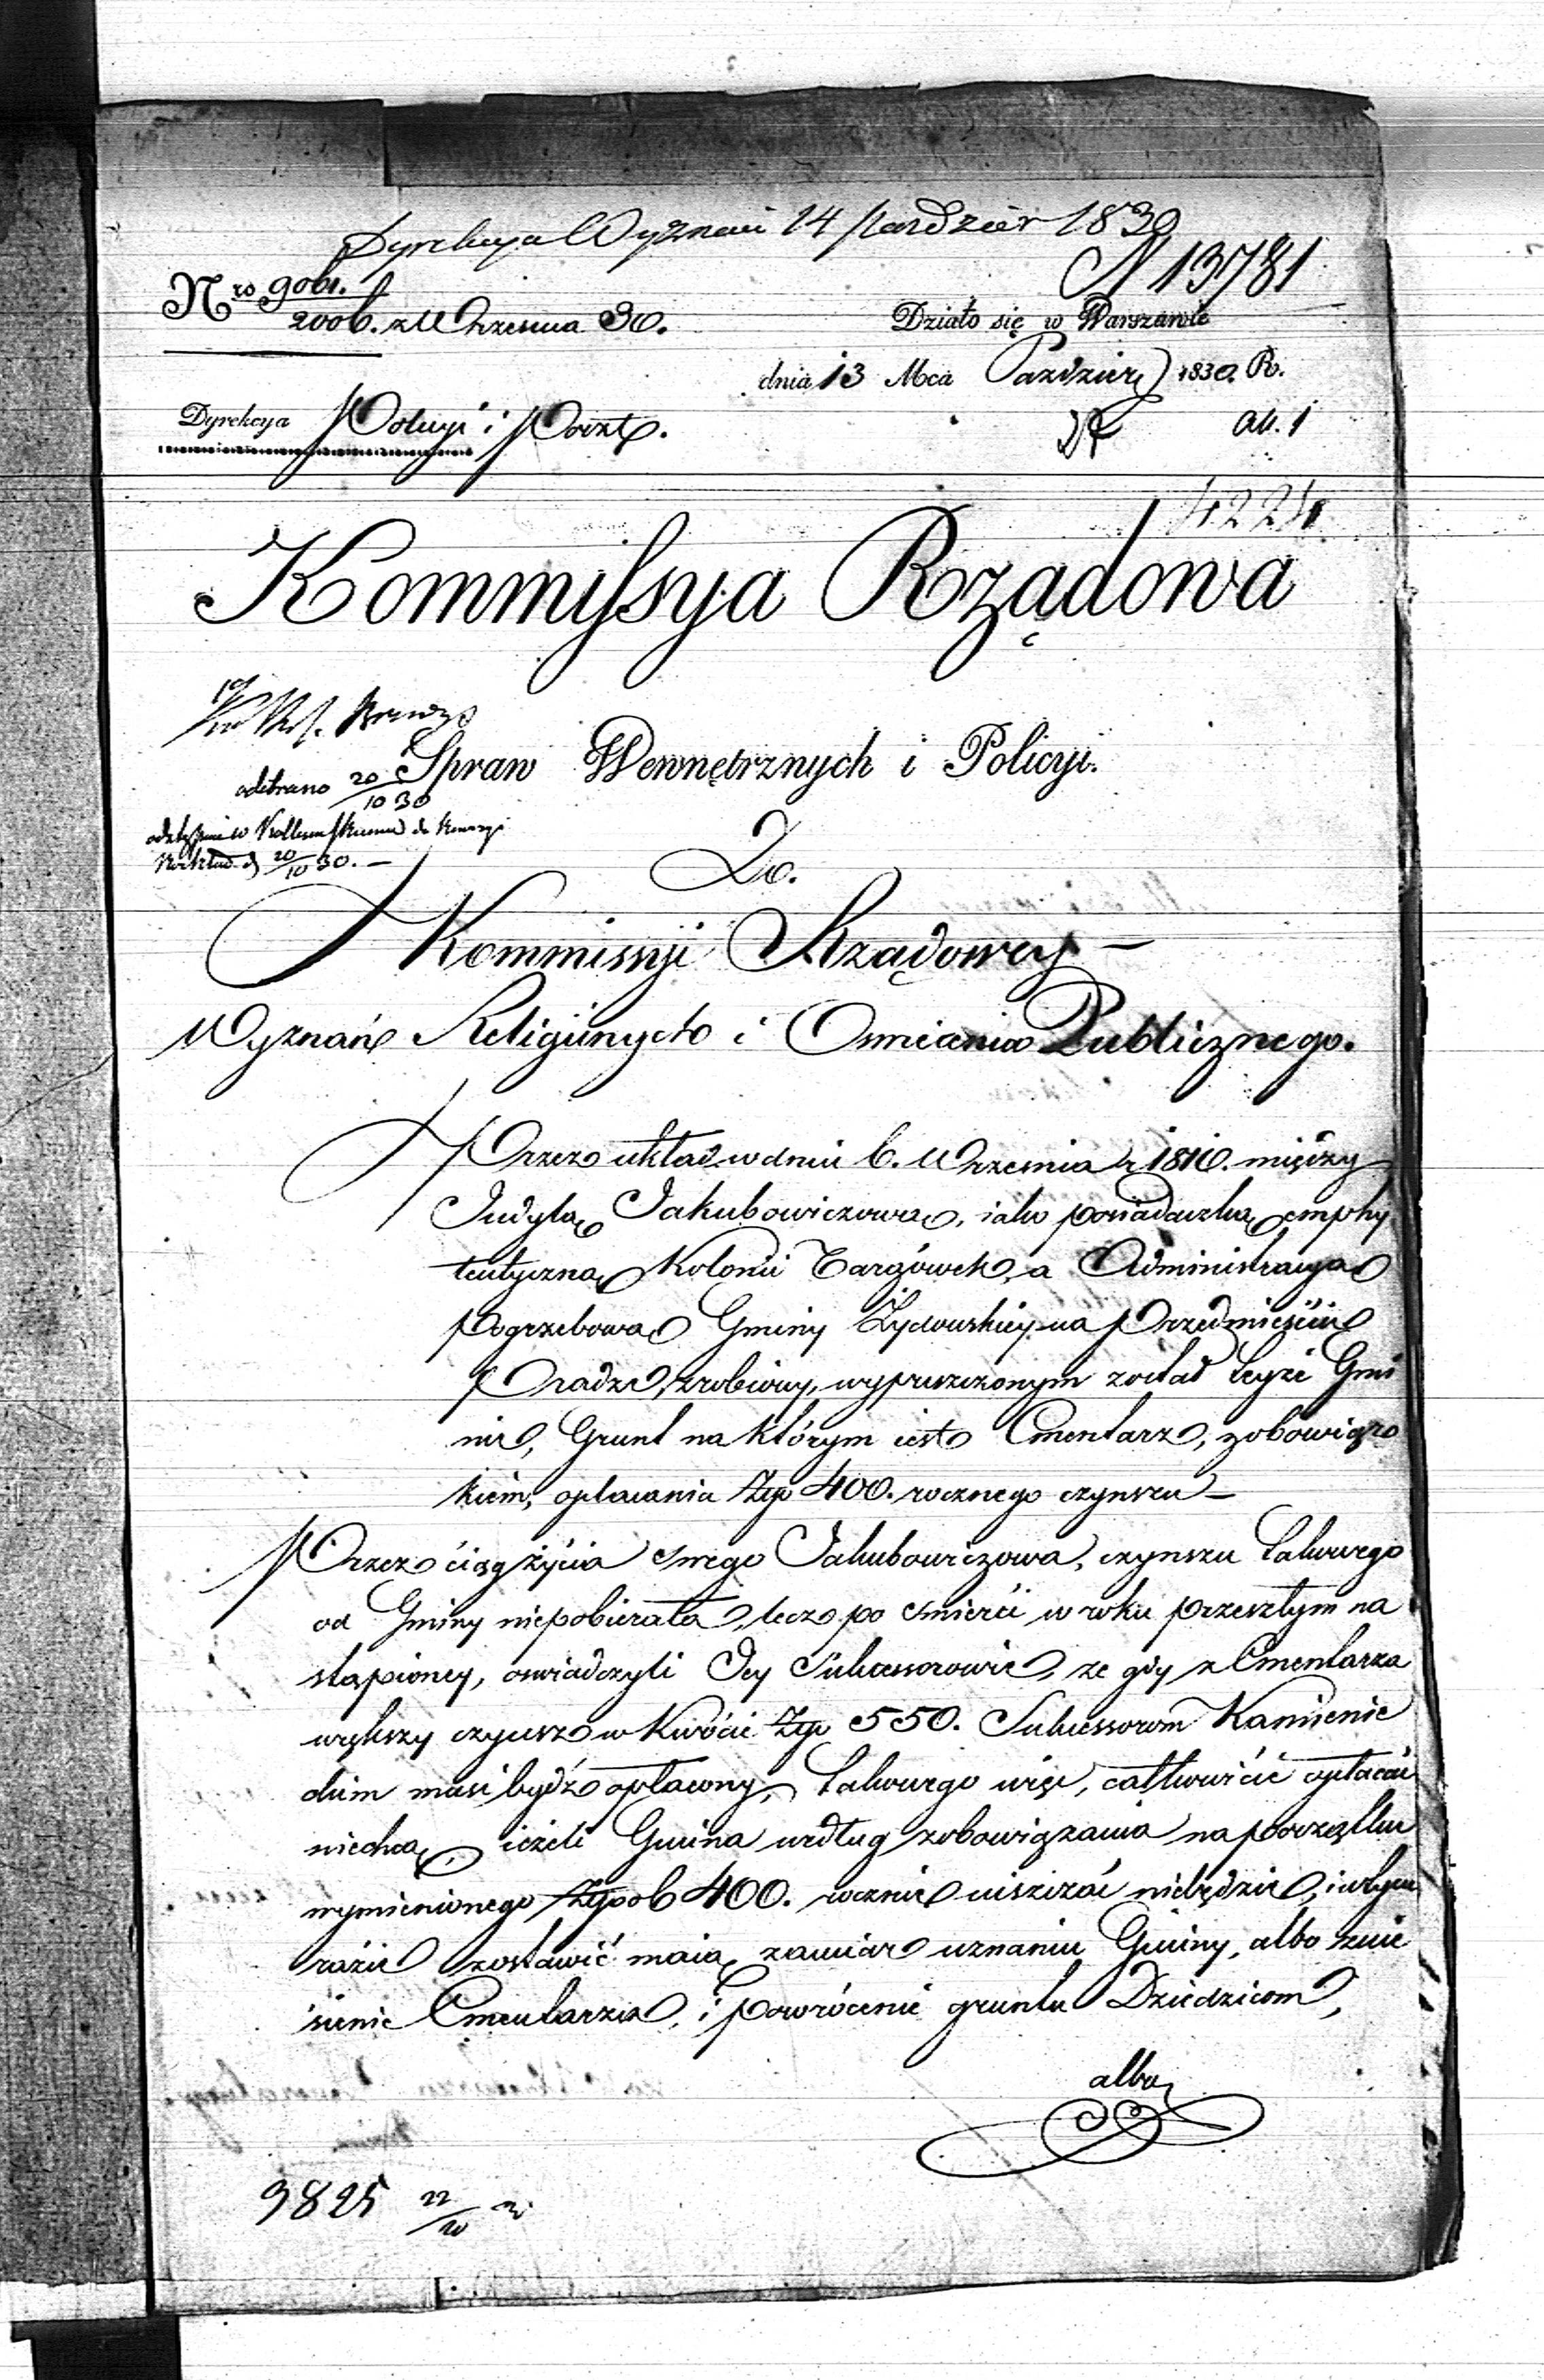 Dyrekcya Wyznań 14 Paździer 1830
N 13781
Nro 9061.
2006. z Września 30.
Działo się w Warszawie
dnia 13 Mca Paździer 1830. R.
Dyrekcya Policyi i Poczt.
4224
Kommissya Rządowa
odebrano 20/10 30
Spraw Wewnętrznych i Policyi.
20/10 30. —
Do.
Kommissyi Rządowey —
Wyznań Religiinych i Oswiecenia Publicznego.
Przez układ w dniu 6. Września r 1810. między
Judytą Jakubowiczową, iako posiadaczką emphy
teutyczną Kolonii Targówek, a Administracyą
pogrzebową Gminy Żydowskiey na Przedmieściu
Pradze, zrobiony, wypuszczonym został teyże Gmi
nie, Grunt na którym iest Cmentarz, z obowiąz
kiem, opłacania Złp 400. rocznego czynszu —
Przez ciąg życia swego Jakubowiczowa, czynszu takowego
od Gminy niepobierała, lecz po smierci w roku przeszłym na
stąpioney, oswiadczyli Jey Sukcessorowie, że gdy z Cmentarza
większy czynsz w kwocie Złp 550. Sukcessorom Kamienie
ckim musi bydź opłacony, takowego więc, całkowicie opłacać
niechcą, ieżeli Gmina według zobowiązania na początku
wymienionego Złp 400. rocznie uiszczać niebędzie, i w tym
razie zostawić maią zamiar uznaniu Gminy, albo znie
sienie Cmentarza, i powrócenie gruntu Dziedzicom,
albo
9825 22/10